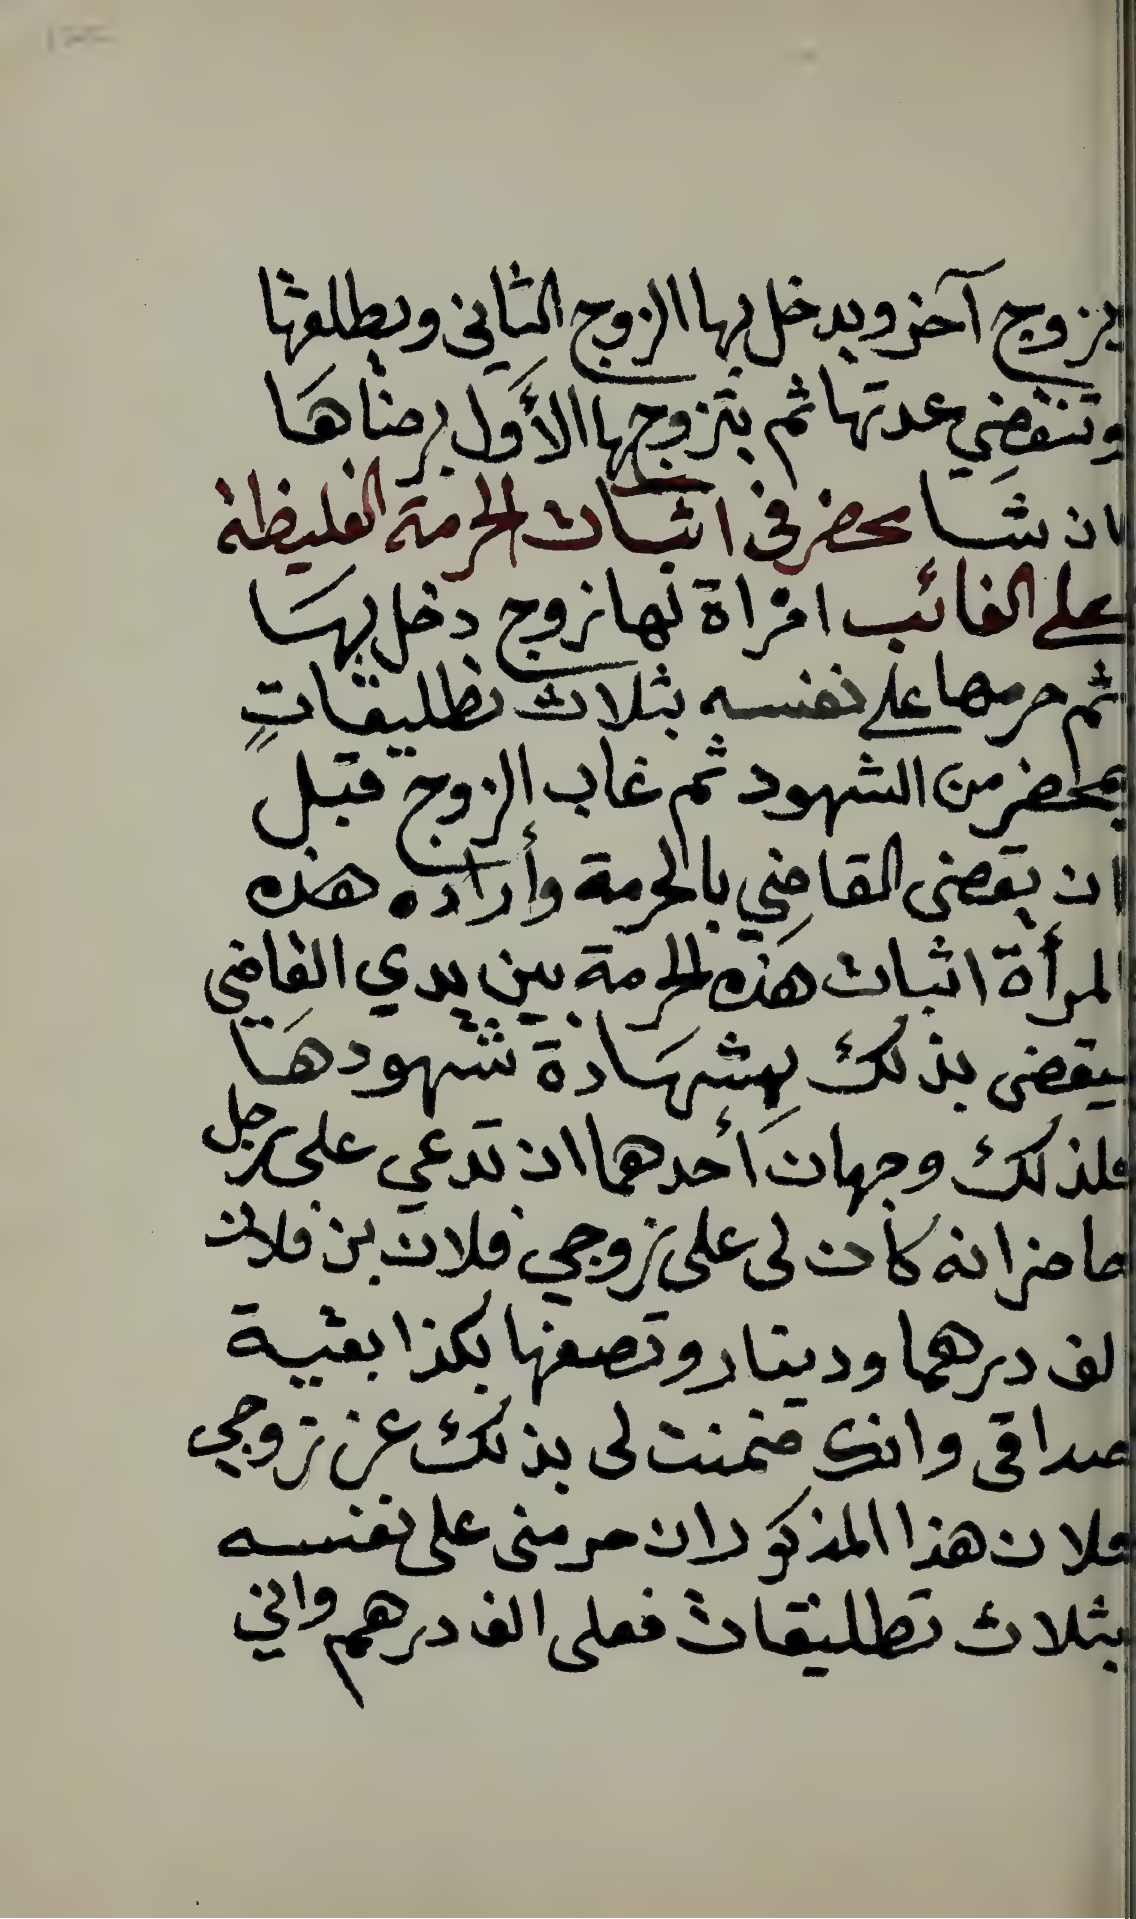 بزوج آخر ويدخل بها الزوج الثاني ويطلقها
وتنقضي عدتها ثم يتزوجها الأول برضاها
ان شا محضر في اثبات الحرمة الغليظة
على الغائب امراة لها زوج دخل بها
ثم حرمها على نفسه بثلاث تطليقاتٍ
بمحضر من الشهود ثم غاب الزوج قبل
ان يقضى القاضي بالحرمة وأراده هذه
المرأة اثبات هذه الحرمة بين يدي القاضي
ليقضى بذلك بشهادة شهودها
فلذلك وجهان أحدهما ان تدعي على رجل
حاضر انه كان لى على زوجي فلان بن فلان
الف درهما ودينار ونصفها بكذا بقية
صداقى وانك ضمنت لى بذلك عن زوجي
فلان هذا المذكور ان حرمنى على نفسه
بثلاث تطليقات فعلى الف درهم واني